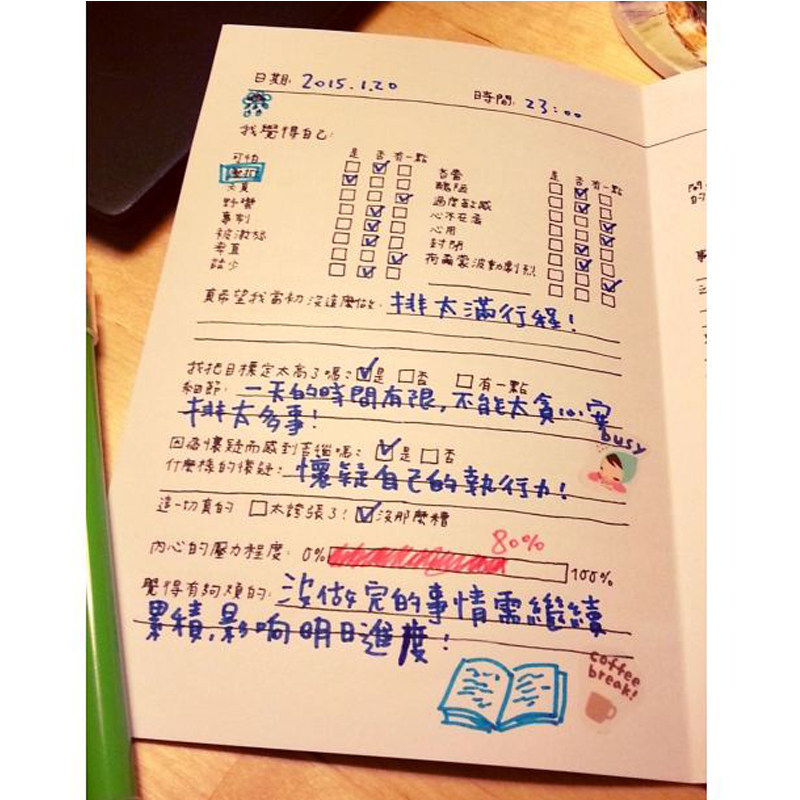 日期: 2015.1.20
時間: 23:00
我覺得自己:
是 否 有一點
可怕
野蠻
專制
被激怒
缺少
是 否 有一點
吝嗇
醜陋
過度敏感
心不在焉
心胸
封閉
荷爾蒙波動劇烈
真希望我當初沒這麼做: 排太滿行程!
我把目標定太高了嗎: 是 否 有一點
細節: 一天的時間有限, 不能太貪心塞
排太多事!
busy
因為懷疑而感到苦惱嗎: 是 否
什麼樣的懷疑: 懷疑自己的執行力!
這一切真的 太誇張了! 沒那麼糟
80%
內心的壓力程度: 0% 100%
覺得有夠煩的: 沒做完的事情需繼續
累積, 影響明日進度!
coffee
break!